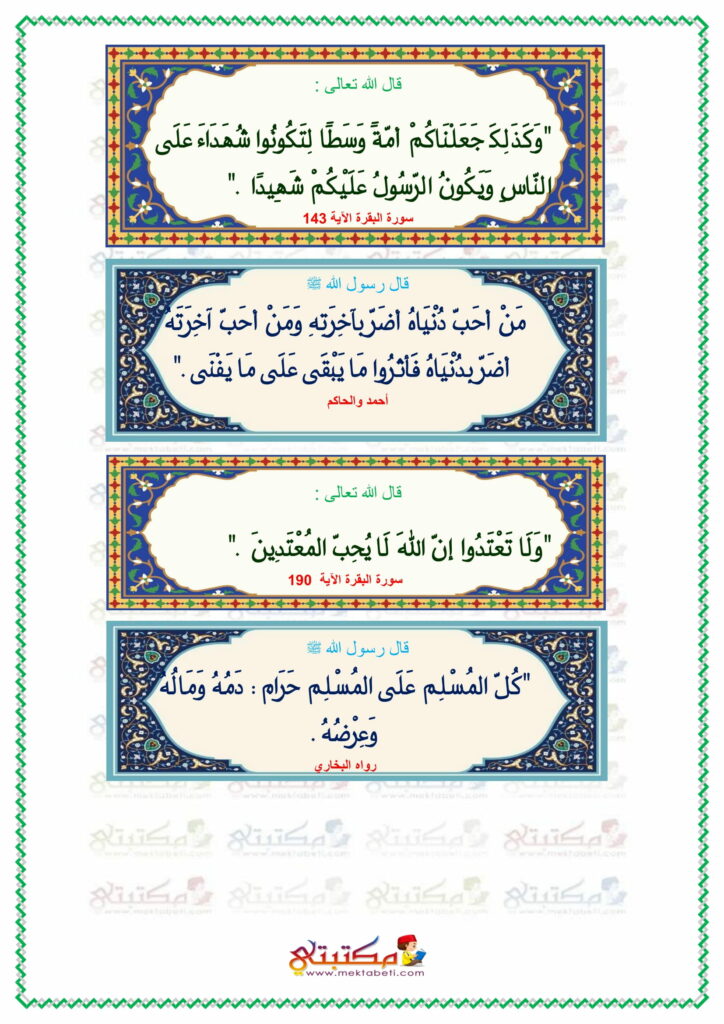 قال الله تعالى :
"وَكَذَلِكَ جَعَلْنَاكُمْ أمّةً وَسَطًا لِتَكُونُوا شُهَدَاءَ عَلَى
النّاسِ وَيَكُونُ الرّسُولُ عَلَيْكُمْ شَهِيدًا ."
سورة البقرة الآية 143
قال رسول الله ﷺ
مَنْ أحَبّ دُنْيَاهُ أضَرّ بآخِرَتِهِ وَمَنْ أحَبّ آخِرَتَه
أضَرّ بِدُنْيَاهُ فَآثرُوا مَا يَبْقَى عَلَى مَا يَفْنَى ."
أحمد والحاكم
قال الله تعالى :
"وَلَا تَعْتَدُوا إنّ اللهَ لَا يُحِبّ المُعْتَدِينَ ."
سورة البقرة الآية 190
قال رسول الله ﷺ
"كُلّ المُسْلِمِ عَلَى المُسْلِمِ حَرَام : دَمُهُ وَمَالُهُ
وَعِرْضُهُ .
رواه البخاري
مكتبتي
www.mektabeti.com